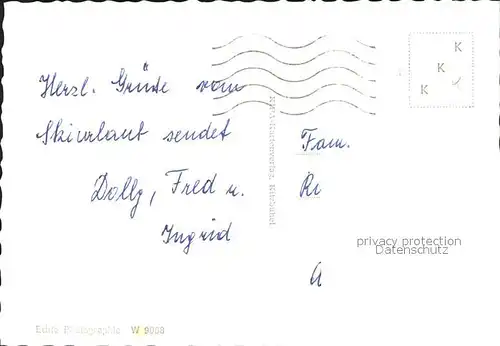 Herzl. Grüße vom
Skiurlaub sendet
Dolly, Fred u.
Ingrid
Fam.
Ri
A
K
K
K
privacy protection
Datenschutz
Echte Photographie W 9053